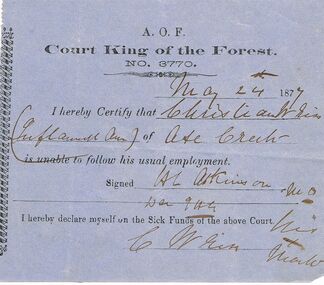 A. O. F.
Court King of the Forest.
NO. 3770.
May 24th 1877
I hereby Certify that Christian
of Axe Creek
is unable to follow his usual employment.
Signed HL Atkinson MO
I hereby declare myself on the Sick Funds of the above Court. his
C Mark